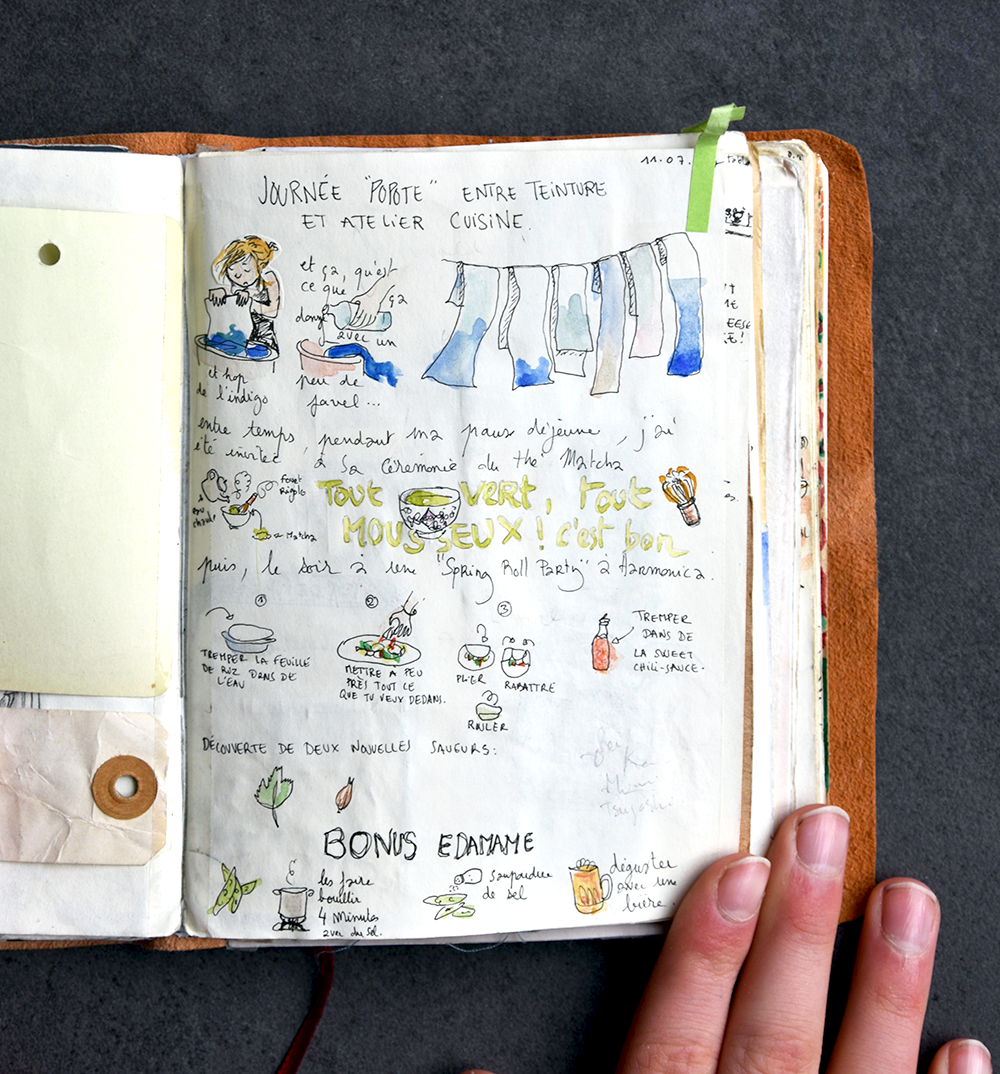 11.07.
JOURNÉE "POPOTE" ENTRE TEINTURE
ET ATELIER CUISINE.
et ça, qu'est
ce que ça
donne
avec un
peu de
javel...
et hop
de l'indigo
entre temps, pendant ma paus déjeune, j'ai
été invitée à sa cérémonie du thé Matcha
eau
chaude
fouet
Rigolo
Matcha
TOUT VERT, TOUT
MOUSSEUX ! c'est bon
puis, le soir à une "Spring Roll Party" à Harmonica.
①
TREMPER LA FEUILLE
DE RIZ DANS DE
L'EAU
②
METTRE A PEU
PRÈS TOUT CE
QUE TU VEUX DEDANS.
③
PLIER
RABATTRE
ROULER
TREMPER
DANS DE
LA SWEET
CHILI-SAUCE.
DÉCOUVERTE DE DEUX NOUVELLES SAVEURS:
Tsuyoshi
BONUS EDAMAME
les faire
bouillir
4 minutes
avec du sel.
saupoudrer
de sel
déguster
avec une
bière.